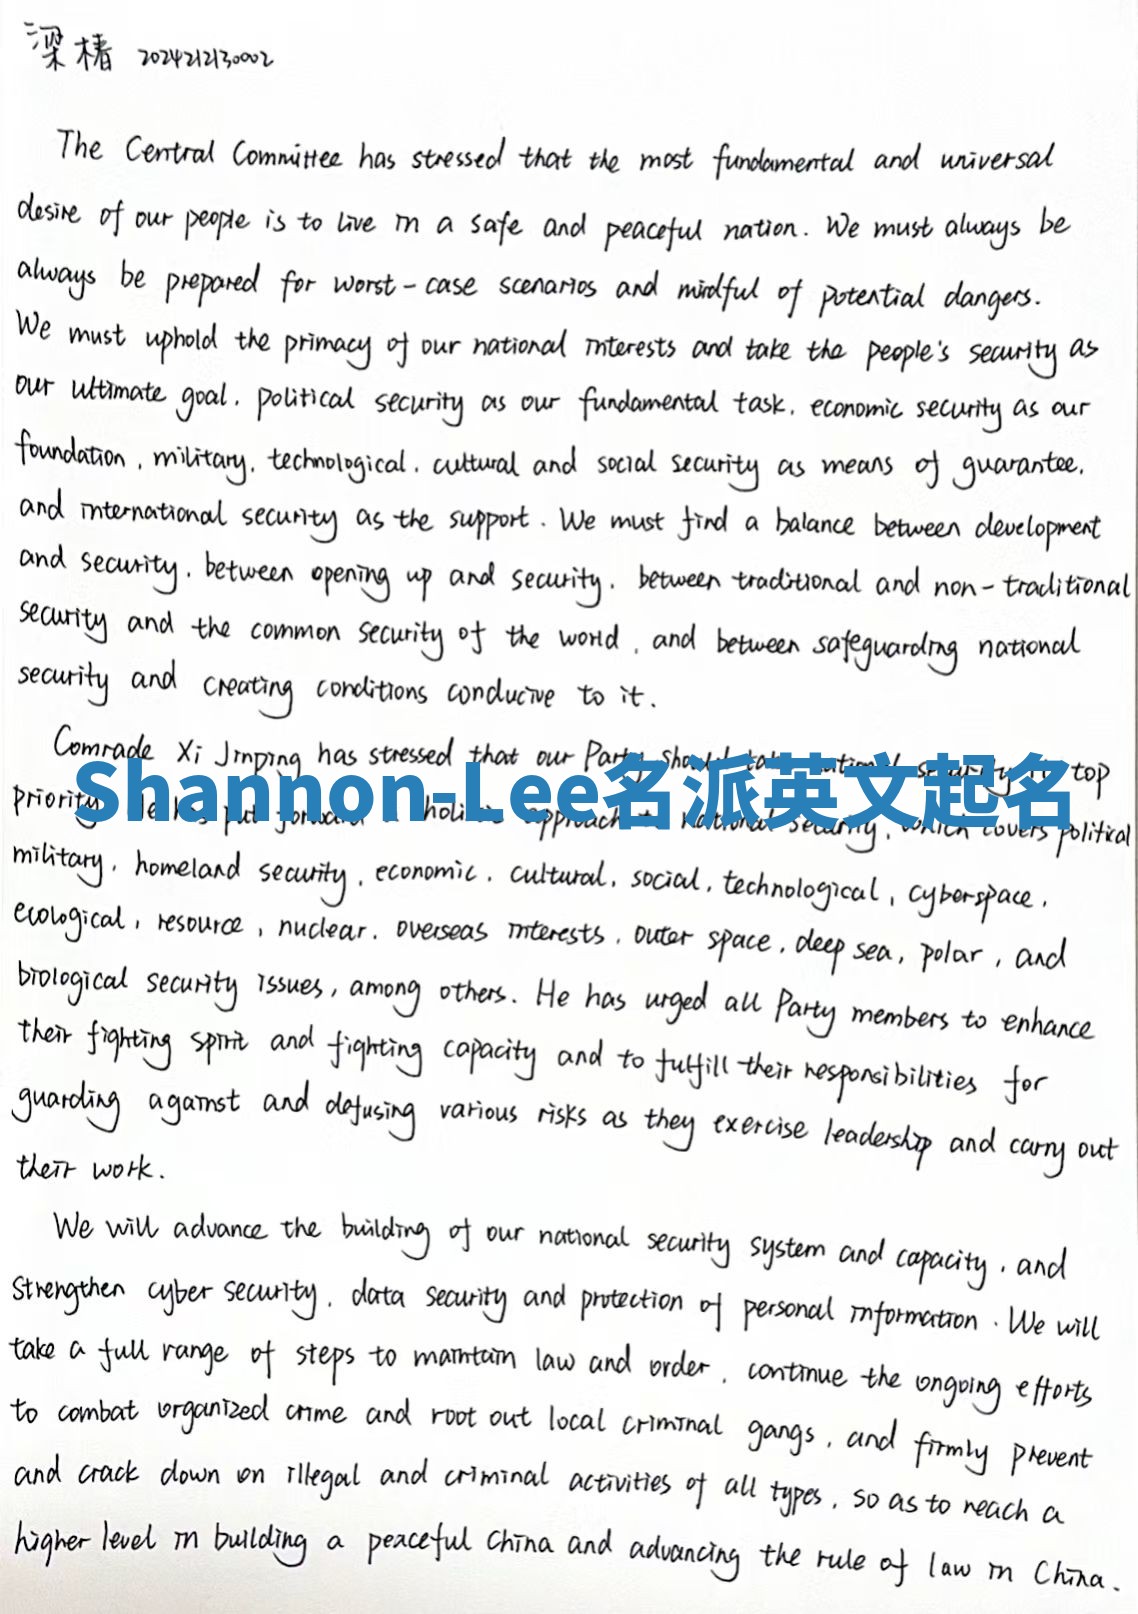 梁椿 2024212130002
The Central Committee has stressed that the most fundamental and universal
desire of our people is to live in a safe and peaceful nation. We must always be
always be prepared for worst-case scenarios and mindful of potential dangers.
We must uphold the primacy of our national interests and take the people's security as
our ultimate goal, political security as our fundamental task, economic security as our
foundation, military, technological, cultural and social security as means of guarantee,
and international security as the support. We must find a balance between development
and security, between opening up and security, between traditional and non-traditional
security and the common security of the world, and between safeguarding national
security and creating conditions conducive to it.
Comrade Xi Jinping has stressed that our Party should security top
Shannon-Lee名派英文起名
priority put forward a holistic approach national security, which covers political
military, homeland security, economic, cultural, social, technological, cyberspace,
ecological, resource, nuclear, overseas interests, outer space, deep sea, polar, and
biological security issues, among others. He has urged all Party members to enhance
their fighting spirit and fighting capacity and to fulfill their responsibilities for
guarding against and defusing various risks as they exercise leadership and carry out
their work.
We will advance the building of our national security system and capacity, and
strengthen cyber security, data security and protection of personal information. We will
take a full range of steps to maintain law and order, continue the ongoing efforts
to combat organized crime and root out local criminal gangs, and firmly prevent
and crack down on illegal and criminal activities of all types, so as to reach a
higher level in building a peaceful China and advancing the rule of law in China.